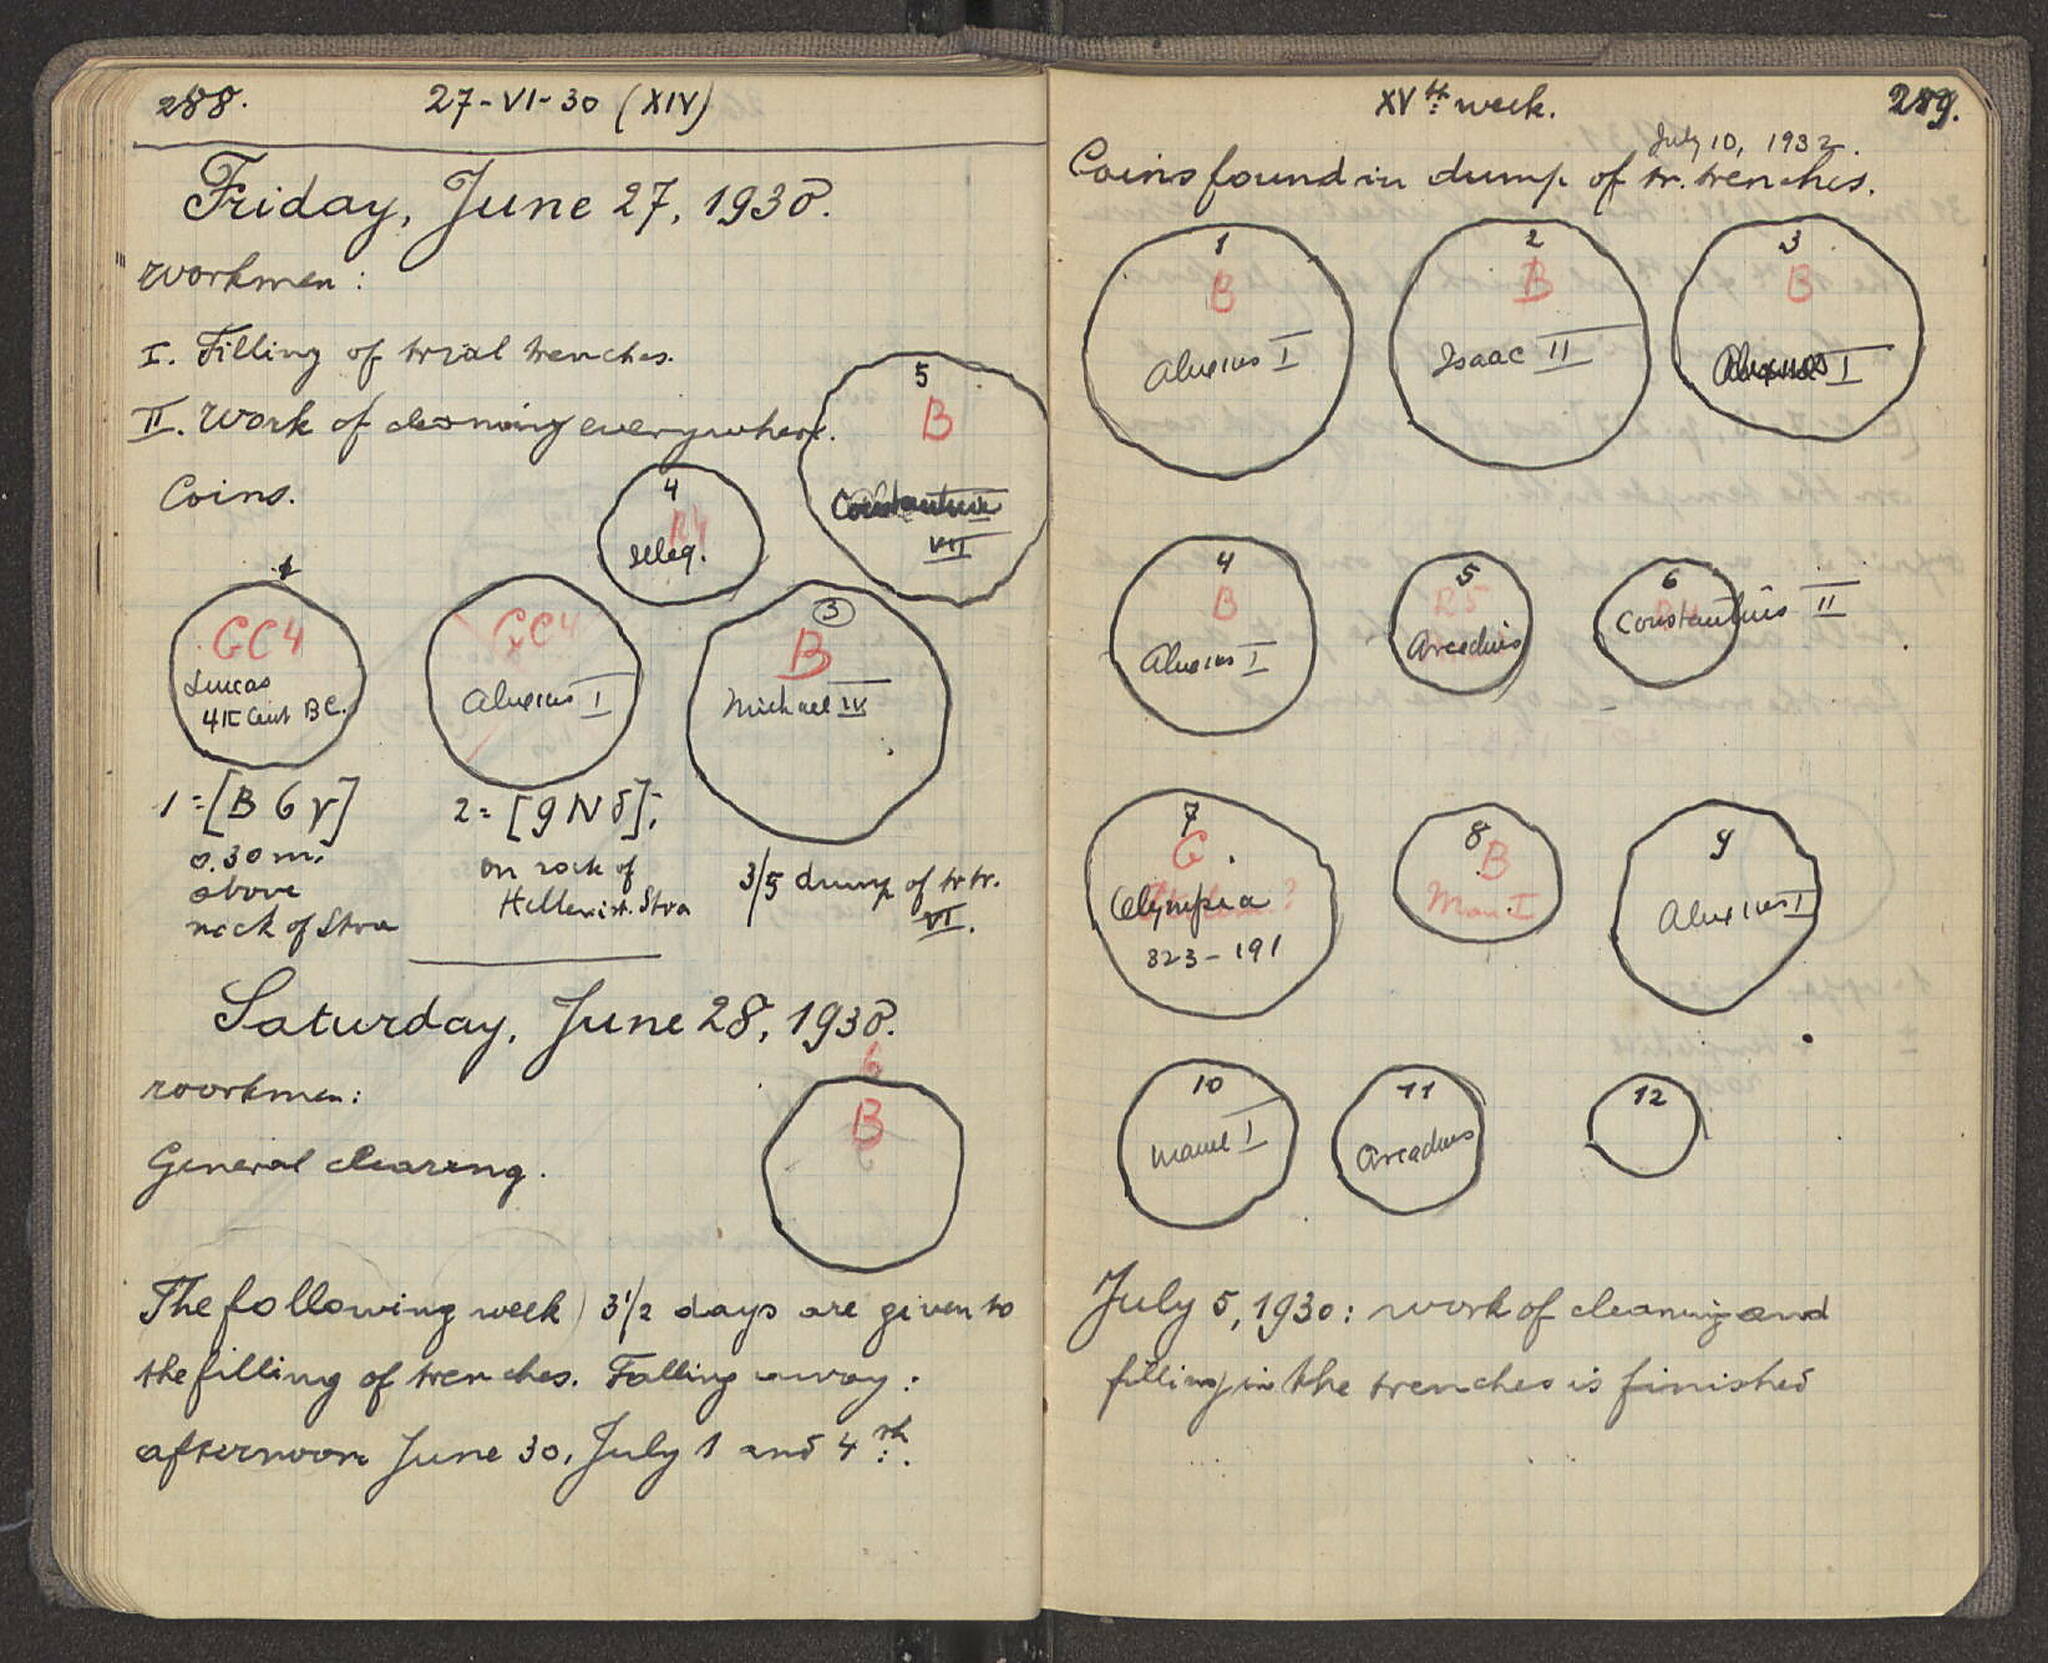 288.
27-VI-30 (XIV)
Friday, June 27, 1930.
Workmen:
I. Filling of trial trenches.
II. Work of cleaning everywhere.
Coins.
5
B
Constantine
VII
4
illeg.
1
GC4
Leucas
4th Cent BC.
GC4
Alexius I
3
B
Michael IV
1=[B 6 γ]
0.30 m.
above
rock of Stoa
2= [9 N δ];
on rock of
Hellenist. Stoa
3/5 dump of tr tr.
VI.
Saturday, June 28, 1930.
6
B
Workmen:
General clearing.
The following week 3 1/2 days are given to
the filling of trenches. Falling away:
afternoon June 30, July 1 and 4th.
XVth week.
289.
July 10, 1932.
Coins found in dump of tr. trenches.
1
B
Alexius I
2
B
Isaac II
3
B
Alexius I
4
B
Alexius I
5
R5
Arcadius
6
Constantius II
7
G
Olympia
323-191
8
B
Man. I
9
Alexius I
10
Manuel I
11
Arcadius
12
July 5, 1930: work of cleaning and
filling in the trenches is finished